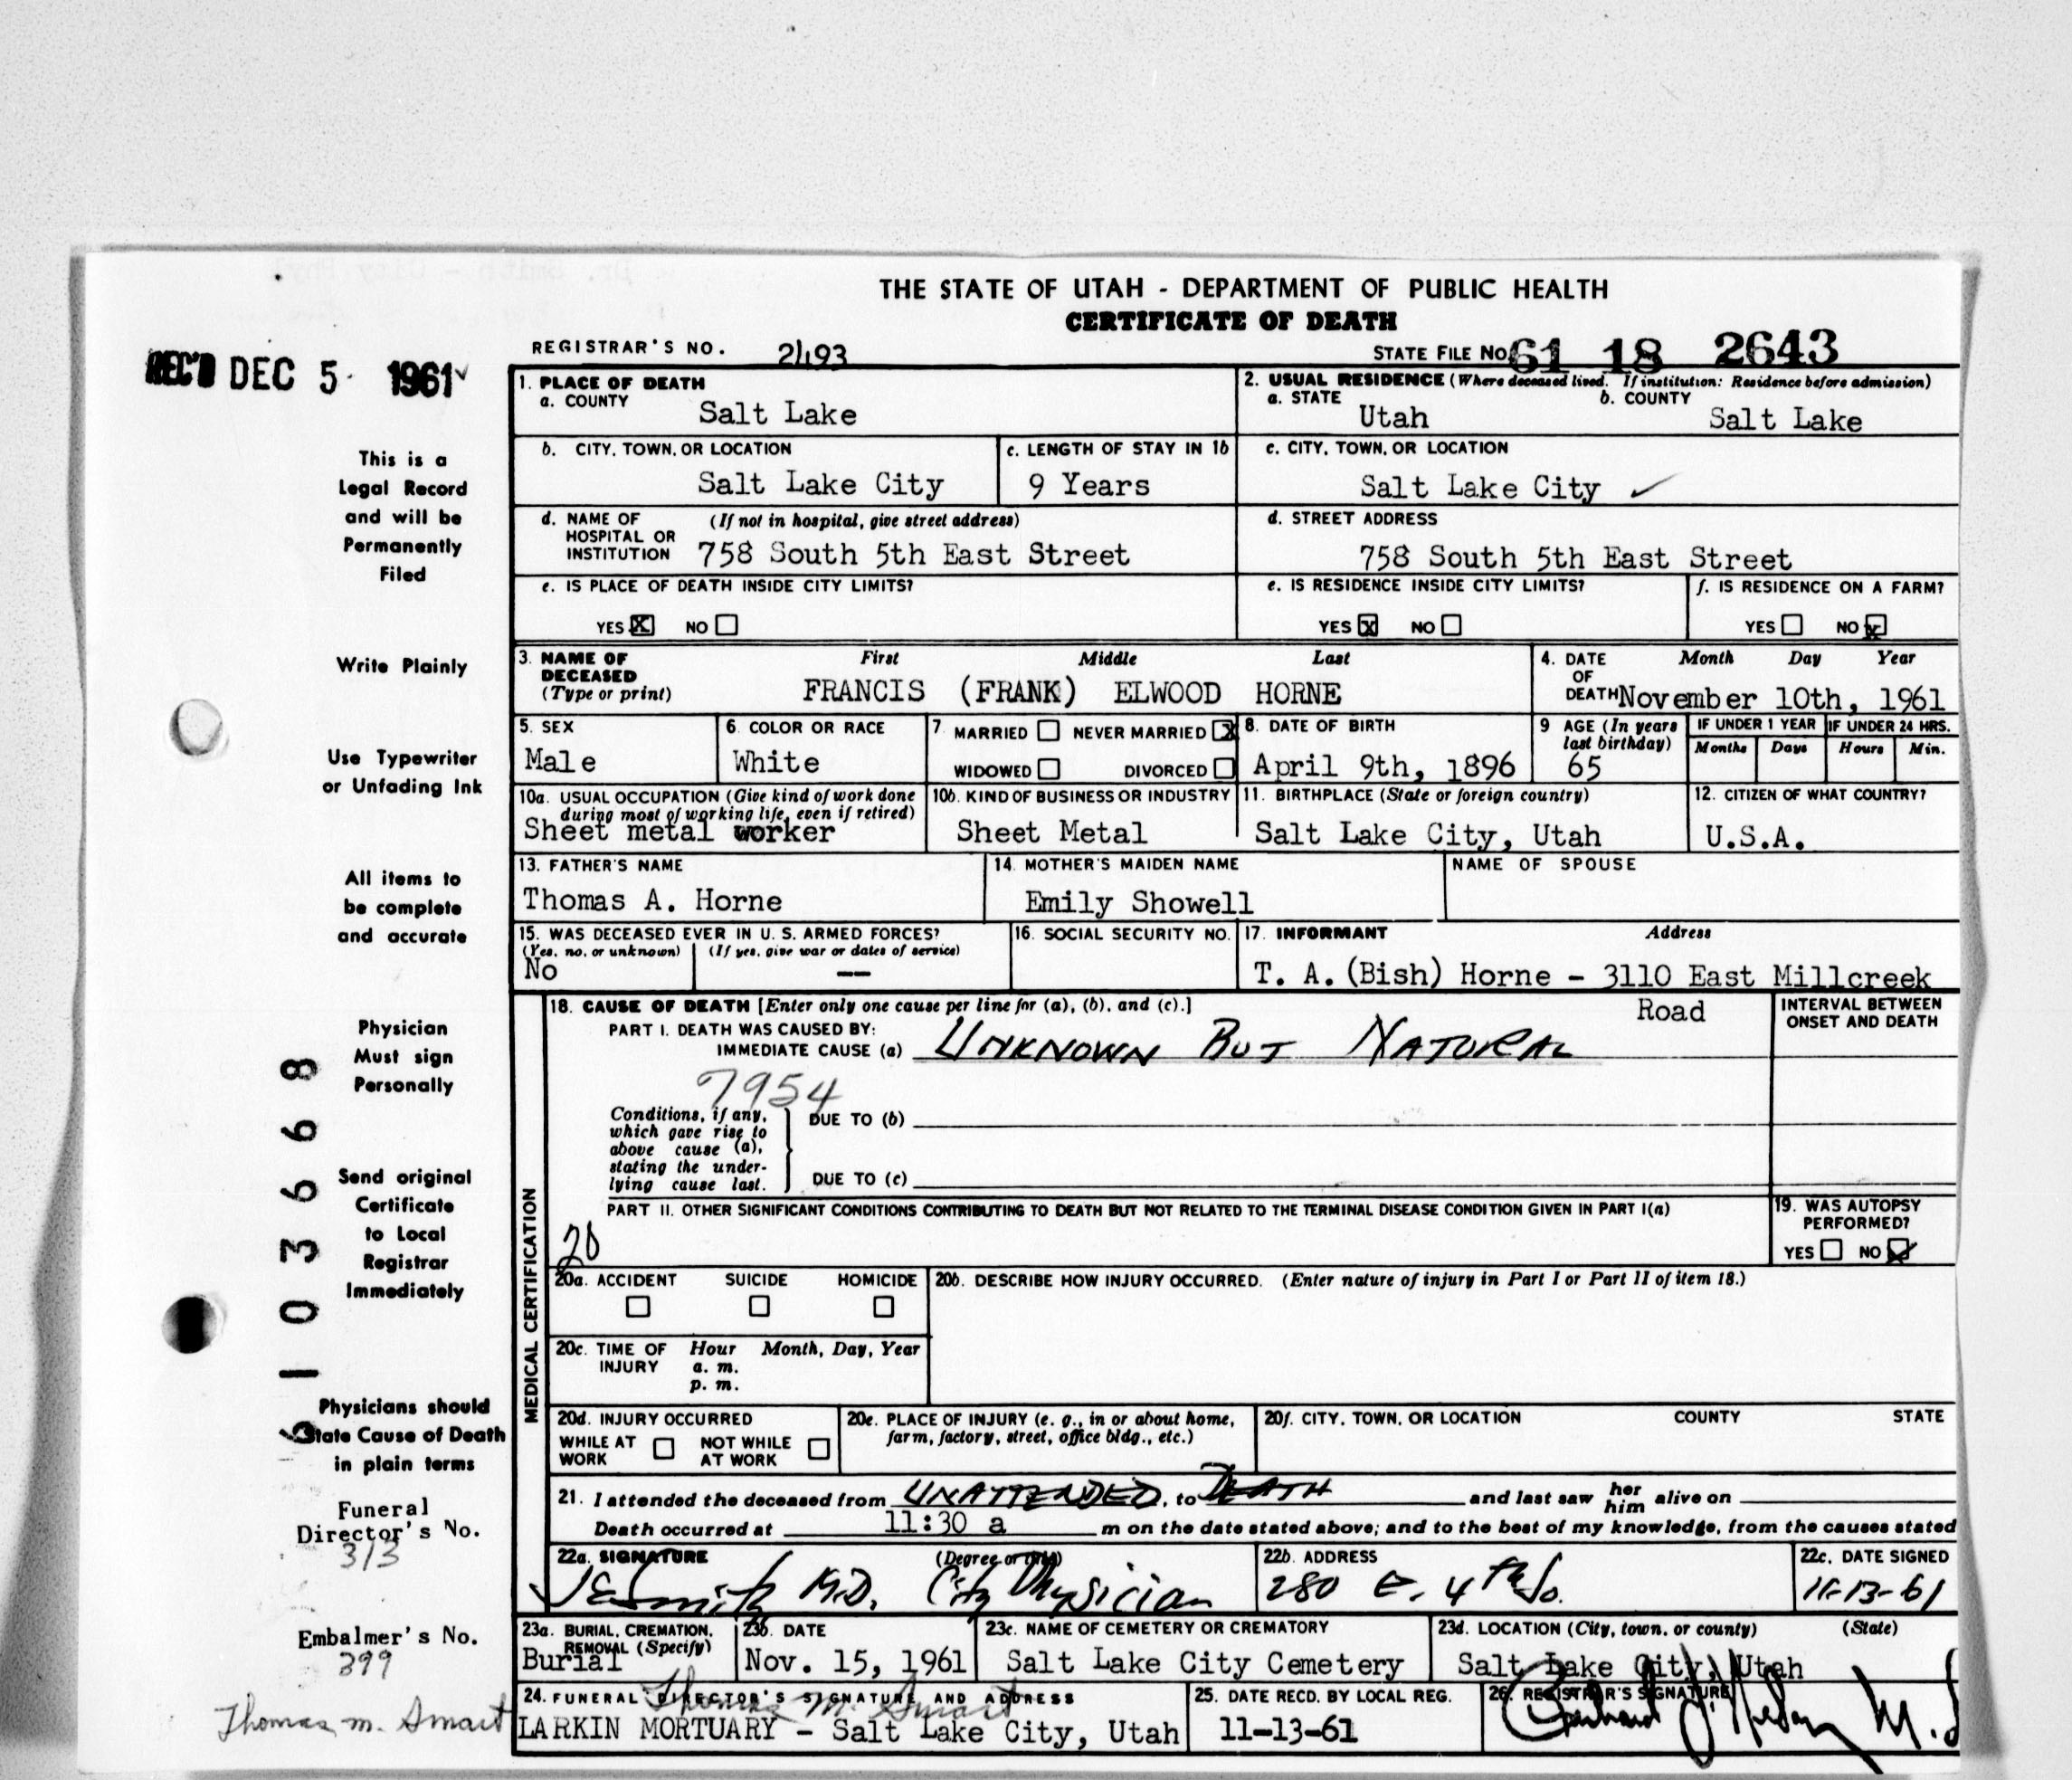 THE STATE OF UTAH - DEPARTMENT OF PUBLIC HEALTH
CERTIFICATE OF DEATH
REGISTRAR'S NO. 2493
STATE FILE NO. 61 18 2643
REC'D DEC 5 1961
1. PLACE OF DEATH
a. COUNTY
Salt Lake
2. USUAL RESIDENCE (Where deceased lived. If institution: Residence before admission)
a. STATE b. COUNTY
Utah Salt Lake
b. CITY, TOWN, OR LOCATION
Salt Lake City
c. LENGTH OF STAY IN 1b
9 Years
c. CITY, TOWN, OR LOCATION
Salt Lake City ✓
d. NAME OF (If not in hospital, give street address)
HOSPITAL OR
INSTITUTION 758 South 5th East Street
d. STREET ADDRESS
758 South 5th East Street
e. IS PLACE OF DEATH INSIDE CITY LIMITS?
YES X NO
e. IS RESIDENCE INSIDE CITY LIMITS?
YES X NO
f. IS RESIDENCE ON A FARM?
YES NO X
3. NAME OF First Middle Last
DECEASED
(Type or print) FRANCIS (FRANK) ELWOOD HORNE
4. DATE Month Day Year
OF
DEATH November 10th, 1961
5. SEX
Male
6. COLOR OR RACE
White
7. MARRIED NEVER MARRIED X
WIDOWED DIVORCED
8. DATE OF BIRTH
April 9th, 1896
9 AGE (In years
last birthday)
65
IF UNDER 1 YEAR
Months Days
IF UNDER 24 HRS.
Hours Min.
10a. USUAL OCCUPATION (Give kind of work done
during most of working life, even if retired)
Sheet metal worker
10b. KIND OF BUSINESS OR INDUSTRY
Sheet Metal
11. BIRTHPLACE (State or foreign country)
Salt Lake City, Utah
12. CITIZEN OF WHAT COUNTRY?
U.S.A.
13. FATHER'S NAME
Thomas A. Horne
14. MOTHER'S MAIDEN NAME
Emily Showell
NAME OF SPOUSE
15. WAS DECEASED EVER IN U. S. ARMED FORCES?
(Yes, no, or unknown) (If yes, give war or dates of service)
No —
16. SOCIAL SECURITY NO.
17. INFORMANT Address
T. A. (Bish) Horne - 3110 East Millcreek
Road
MEDICAL CERTIFICATION
18. CAUSE OF DEATH [Enter only one cause per line for (a), (b), and (c).]
PART I. DEATH WAS CAUSED BY:
IMMEDIATE CAUSE (a) UNKNOWN BUT NATURAL
INTERVAL BETWEEN
ONSET AND DEATH
7954
Conditions, if any,
which gave rise to
above cause (a),
stating the under-
lying cause last.
DUE TO (b)
DUE TO (c)
PART II. OTHER SIGNIFICANT CONDITIONS CONTRIBUTING TO DEATH BUT NOT RELATED TO THE TERMINAL DISEASE CONDITION GIVEN IN PART I(a)
20
19. WAS AUTOPSY
PERFORMED?
YES NO
20a. ACCIDENT SUICIDE HOMICIDE
20b. DESCRIBE HOW INJURY OCCURRED. (Enter nature of injury in Part I or Part II of item 18.)
20c. TIME OF Hour Month, Day, Year
INJURY a. m.
p. m.
20d. INJURY OCCURRED
WHILE AT NOT WHILE
WORK AT WORK
20e. PLACE OF INJURY (e. g., in or about home,
farm, factory, street, office bldg., etc.)
20f. CITY, TOWN, OR LOCATION COUNTY STATE
21. I attended the deceased from UNATTENDED, to DEATH and last saw her him alive on
Death occurred at 11:30 a m on the date stated above; and to the best of my knowledge, from the causes stated
22a. SIGNATURE (Degree or title)
Smith M.D. City Physician
22b. ADDRESS
280 E. 4th So.
22c. DATE SIGNED
11-13-61
23a. BURIAL, CREMATION,
REMOVAL (Specify)
Burial
23b. DATE
Nov. 15, 1961
23c. NAME OF CEMETERY OR CREMATORY
Salt Lake City Cemetery
23d. LOCATION (City, town, or county) (State)
Salt Lake City, Utah
24. FUNERAL DIRECTOR'S SIGNATURE AND ADDRESS
Thomas M. Smart
LARKIN MORTUARY - Salt Lake City, Utah
25. DATE RECD. BY LOCAL REG.
11-13-61
26. REGISTRAR'S SIGNATURE
This is a
Legal Record
and will be
Permanently
Filed
Write Plainly
Use Typewriter
or Unfading Ink
All items to
be complete
and accurate
Physician
Must sign
Personally
Send original
Certificate
to Local
Registrar
Immediately
Physicians should
State Cause of Death
in plain terms
Funeral
Director's No.
313
Embalmer's No.
399
Thomas M. Smart